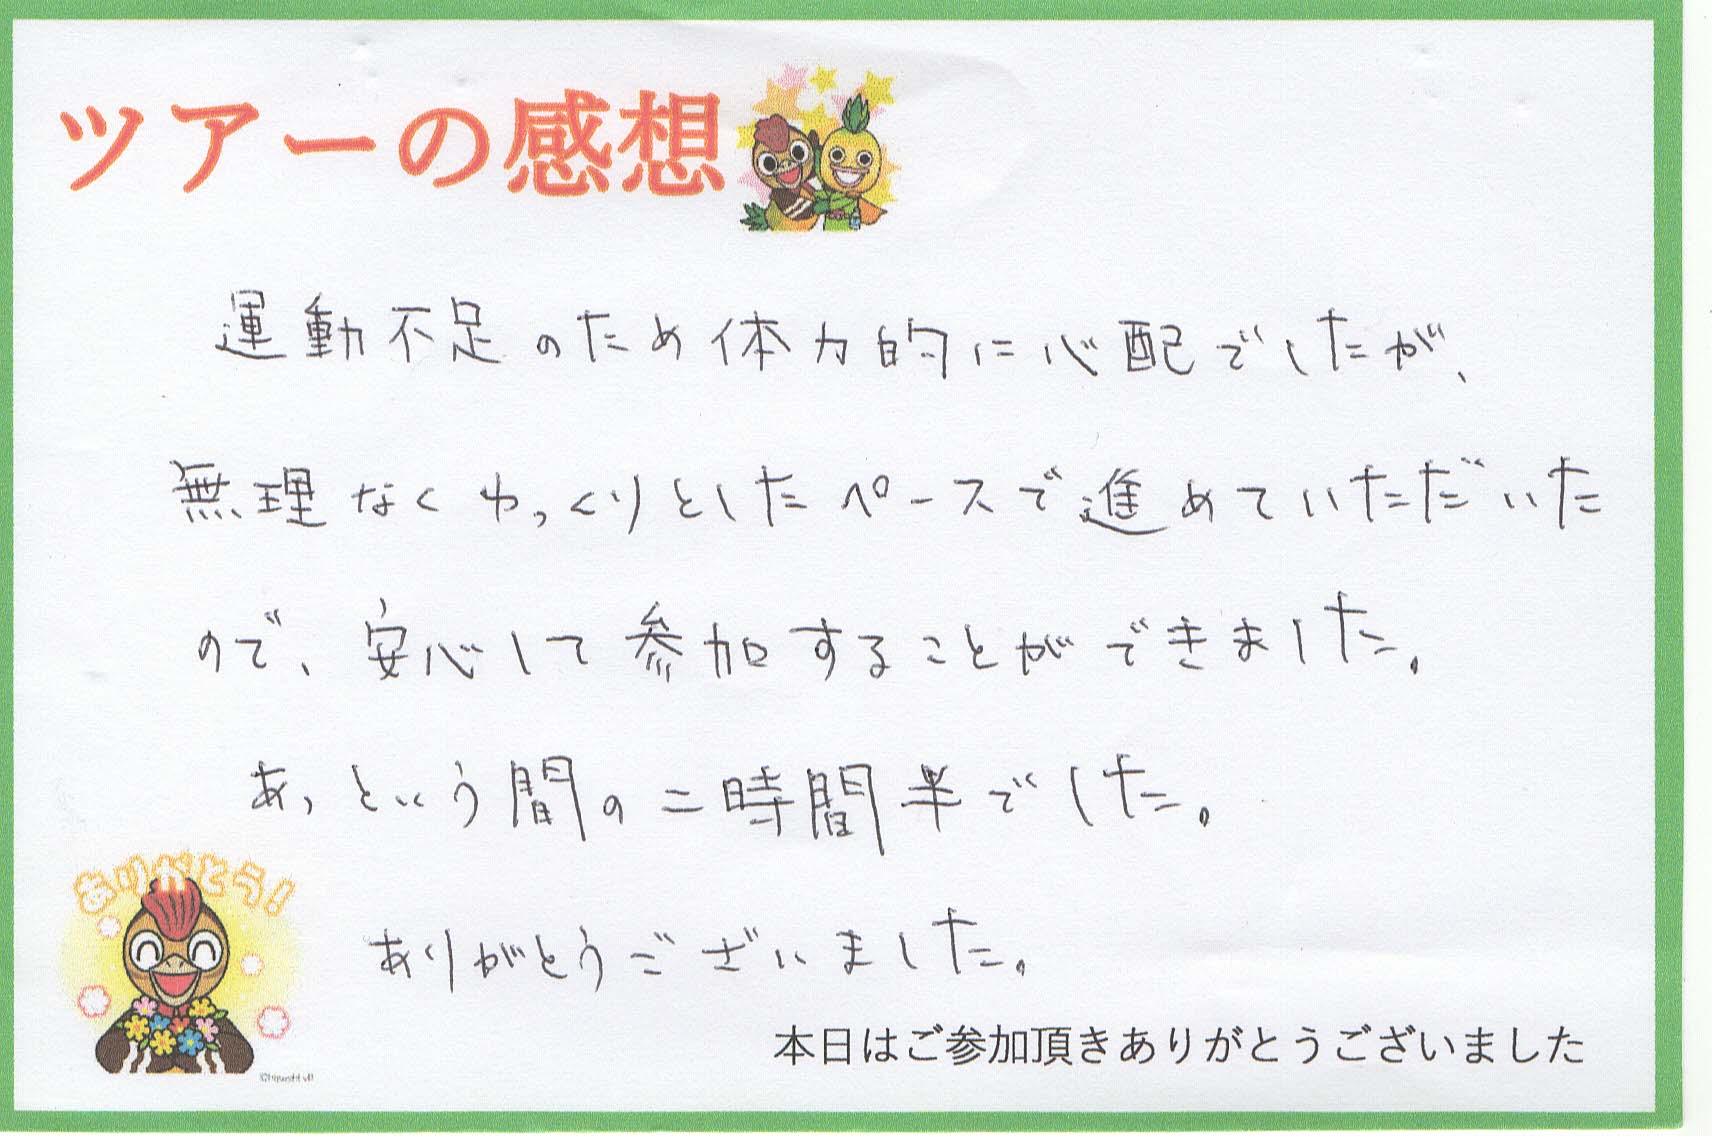 ツアーの感想
運動不足のため体力的に心配でしたが、
無理なくゆっくりとしたペースで進めていただいた
ので、安心して参加することができました。
あっという間の二時間半でした。
ありがとう!
ありがとうございました。
本日はご参加頂きありがとうございました